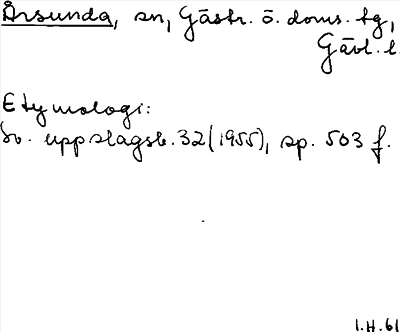 Årsunda, sn, Gästr. ö. doms. tg,
Gävl. l.
Etymologi:
Sv. uppslagsb. 32 (1955), sp. 503 f.
1.H.61